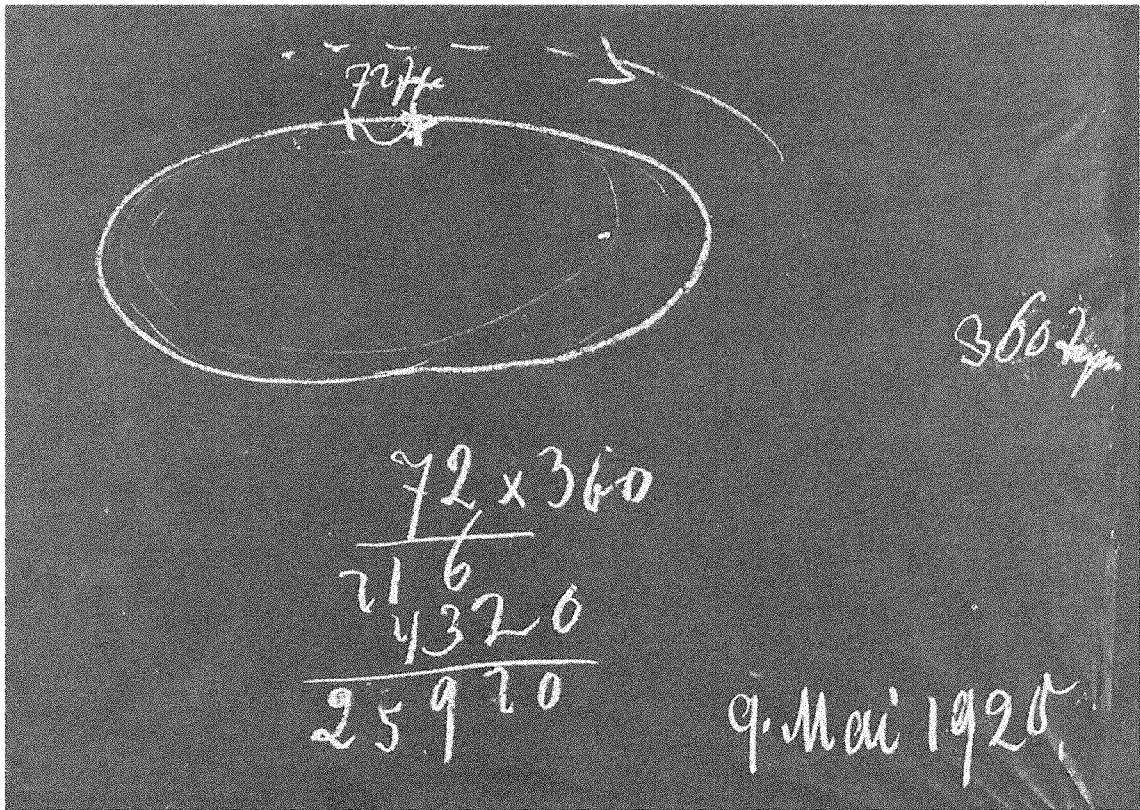 72
360
72 x 360
216
4320
25920
9. Mai 1920.